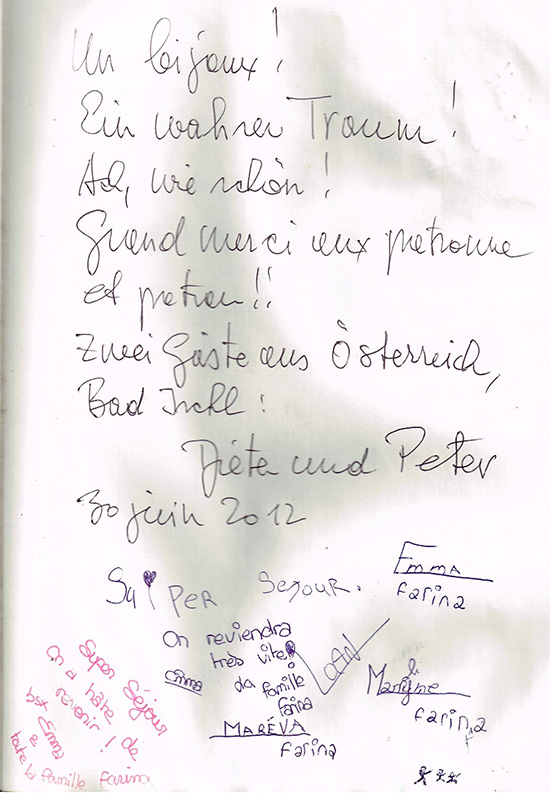 Un bijoux!
Ein wahrer Traum!
Ach, wie schön!
Grand merci aux patronne
et patron!!
Zwei Gäste aus Österreich,
Bad Ischl:
und Peter
30 juin 2012
Super sejour.
Emma
farina
On reviendra
très vite!
Emma
da famille
farina
MARÉVA
farina
farina
Super Séjour
on a hâte de
revenir!
bst Emma
&
toute la famille farina